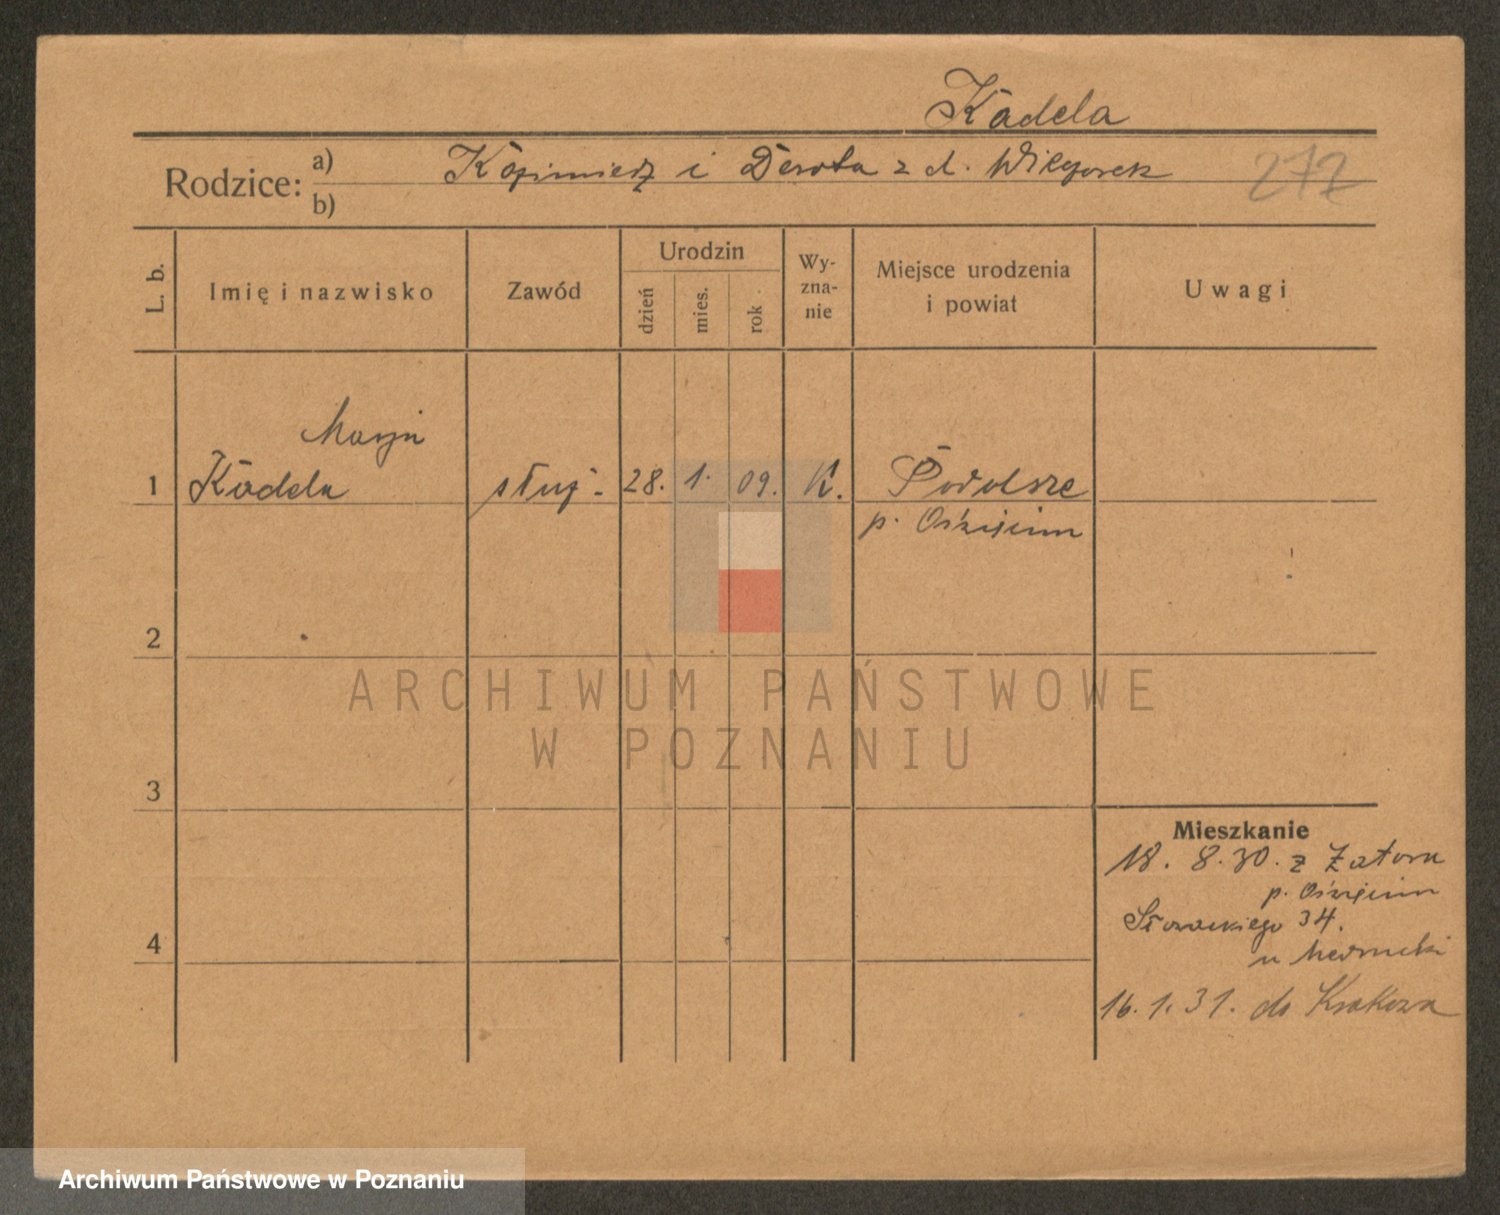 Kadela
Rodzice: a) Kazimierz i Dorota z d.
b)
272
L. b.
Imię i nazwisko
Zawód
Urodzin
dzień
mies.
rok
Wy-
zna-
nie
Miejsce urodzenia
i powiat
Uwagi
Marja
1 Kadela służ. 28. 1. 09. K. Podolsze
p. Oświęcim
2
3
4
Mieszkanie
18. 8. 30. z Zatora
p. Oświęcim
Słowackiego 34.
u
16. 1. 31. do Krakowa
ARCHIWUM PAŃSTWOWE
W POZNANIU
Archiwum Państwowe w Poznaniu